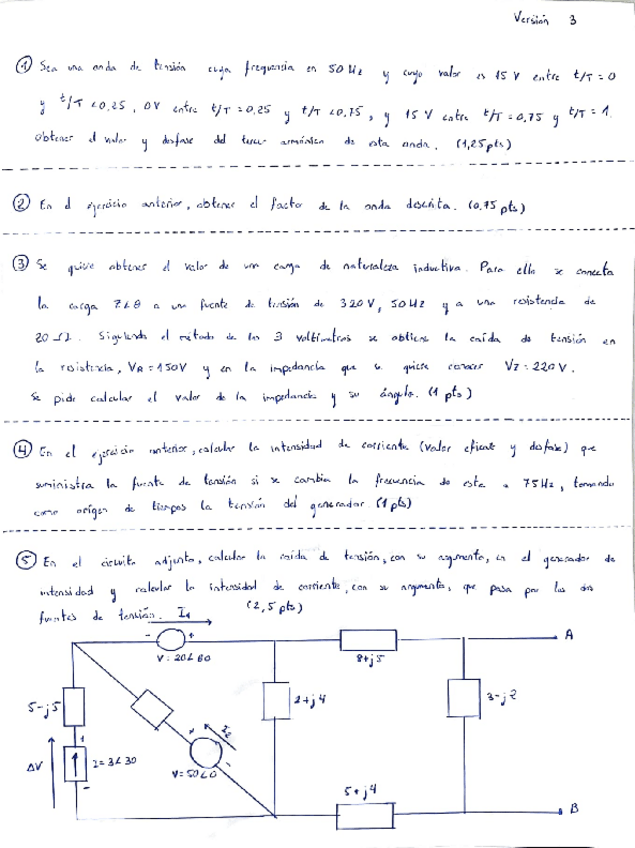 Versión 3
① Sea una onda de tensión cuya frecuencia es 50 Hz y cuyo valor es 15 V entre t/T = 0
y t/T < 0,25, 0V entre t/T = 0,25 y t/T < 0,75, y 15 V entre t/T = 0,75 y t/T = 1.
Obtener el valor y desfase del tercer armónico de esta onda. (1,25 pts)
② En el ejercicio anterior, obtener el factor de la onda descrita. (0,75 pts)
③ Se quiere obtener el valor de una carga de naturaleza inductiva. Para ello se conecta
la carga Z∠θ a una fuente de tensión de 320V, 50Hz y a una resistencia de
20 Ω. Siguiendo el método de los 3 voltímetros se obtiene la caída de tensión en
la resistencia, VR = 150V y en la impedancia que se quiere conocer VZ = 220V.
Se pide calcular el valor de la impedancia y su ángulo. (1 pts)
④ En el ejercicio anterior, calcular la intensidad de corriente (valor eficaz y desfase) que
suministra la fuente de tensión si se cambia la frecuencia de esta a 75Hz, tomando
como origen de tiempos la tensión del generador. (1 pts)
⑤ En el circuito adjunto, calcular la caída de tensión, con su argumento, en el generador de
intensidad y calcular la intensidad de corriente, con su argumento, que pasa por las dos
fuentes de tensión. (2,5 pts)
I1
- +
A
V = 20∠60
8+j5
5-j5
2+j4
3-j2
+
I2
+
ΔV
I = 3∠30
-
V = 50∠0
-
5+j4
B